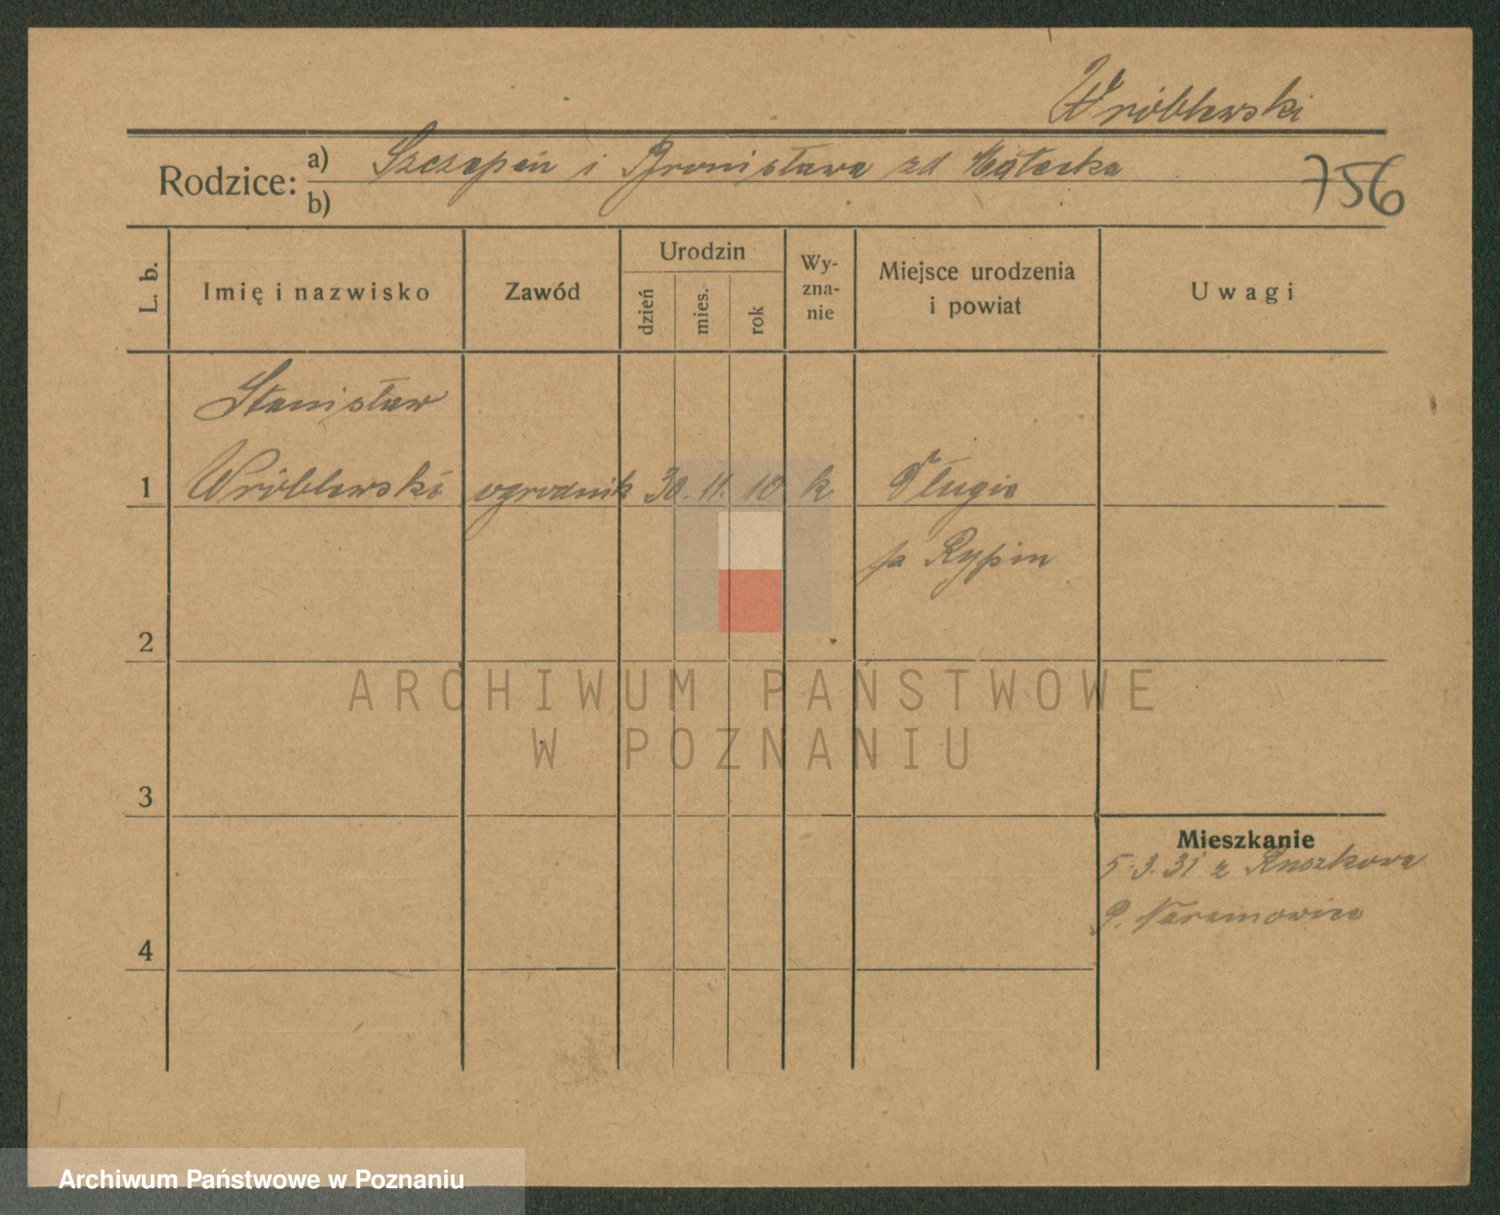 Wróblewski
Rodzice: a) Szczepan i Bronisława zd Małecka
b)
756
L. b.
Imię i nazwisko
Zawód
Urodzin
dzień
mies.
rok
Wy-
zna-
nie
Miejsce urodzenia
i powiat
Uwagi
Stanisław
1 Wróblewski ogrodnik 30. 11. 10 k Długie
p Rypin
2
ARCHIWUM PAŃSTWOWE
W POZNANIU
3
Mieszkanie
5.3.31 z Ruszkowa
P. Naramowice
4
Archiwum Państwowe w Poznaniu